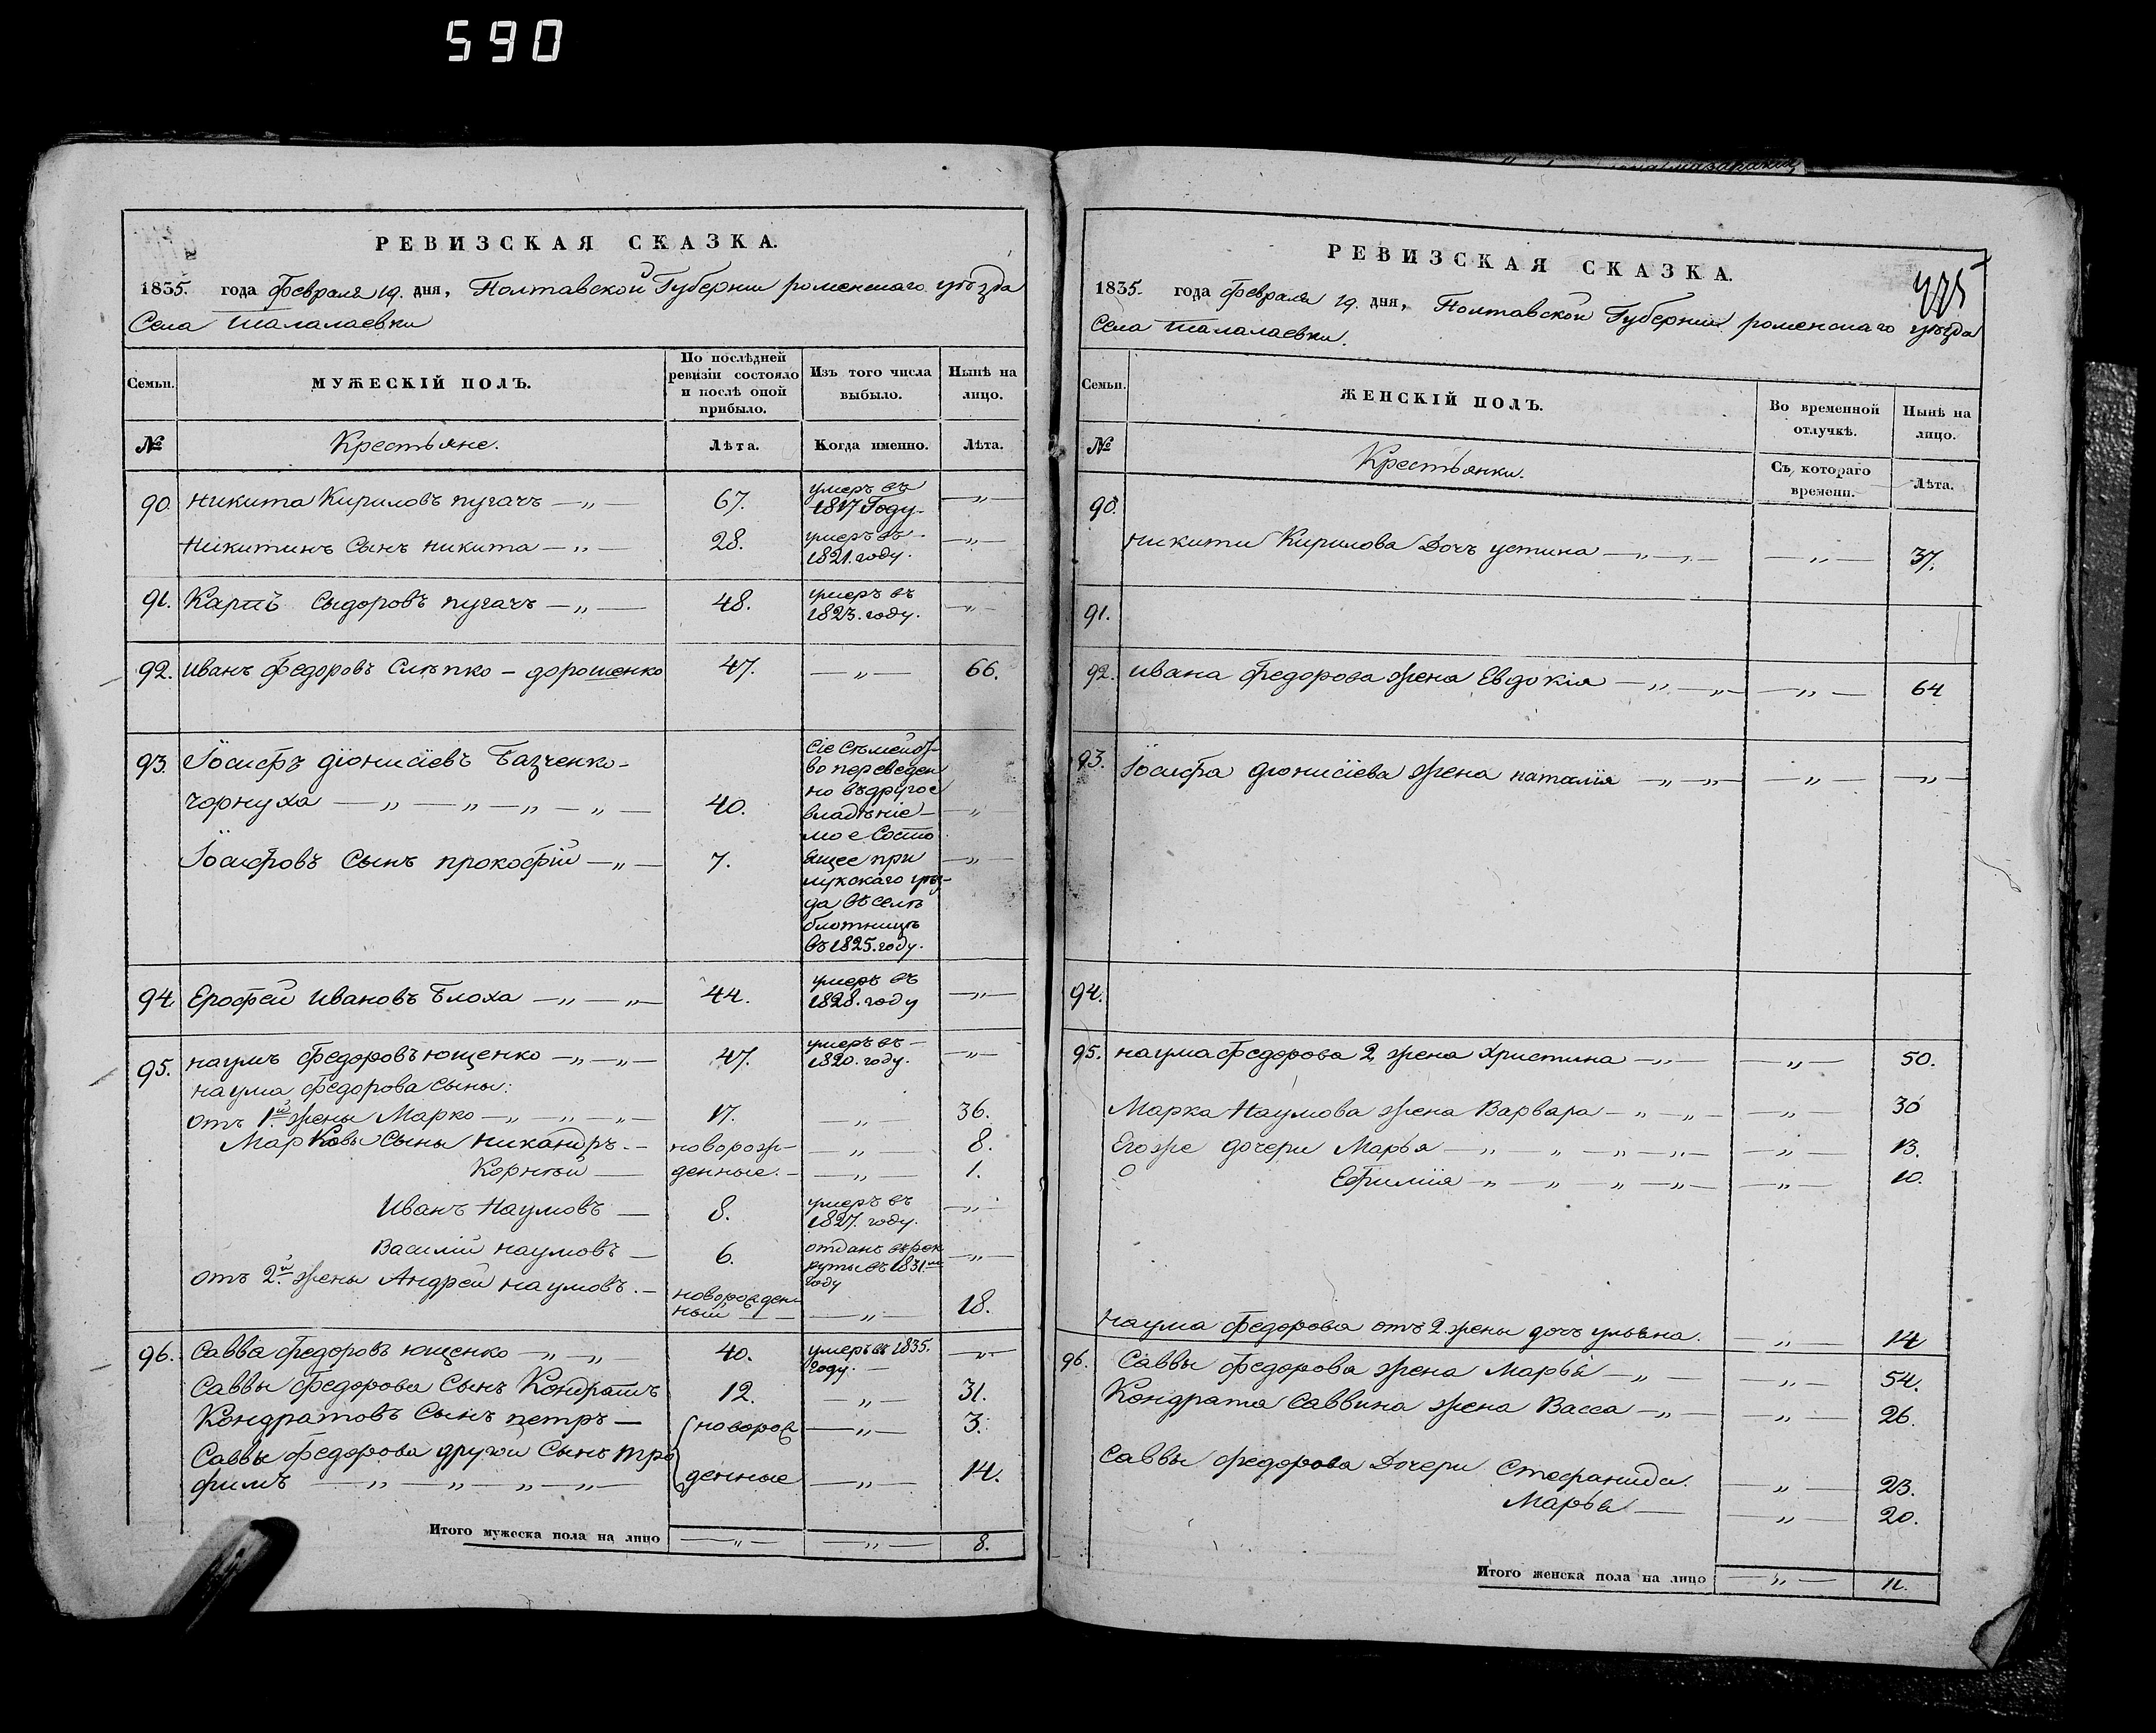 590
РЕВИЗСКАЯ СКАЗКА.
1835. года Февраля 19. дня, Полтавской Губернии роменскаго уѣзда
Села талалаевки
Семьи. МУЖЕСКІЙ ПОЛЪ. По послѣдней ревизіи состояло и послѣ оной прибыло. Изъ того числа выбыло. Нынѣ на лицо.
№ Крестьяне. Лѣта. Когда именно. Лѣта.
90. Никита Кириловъ пугачъ — „ — 67. умеръ въ 1817 Году. — „ —
Никитинъ Сынъ никита — „ — 28. умеръ въ 1821. году. — „ —
91. Карпъ Сыдоровъ пугачъ — „ — 48. умеръ въ 1823. году. — „ —
92. Иванъ Федоровъ Слѣпко – дорошенко 47. — „ — 66.
93. Іосифъ Діонисіевъ Базченко-
чорнуха — „ — „ — „ — „ — 40. Сіе Съмейст-
во переведен
но въ другое
владѣніе — „ —
мое Состо
Іосифовъ Сынъ прокофій — „ — 7. ящее при — „ —
лукскаго уѣз-
да въ селѣ
блотницѣ
въ 1825. году.
94. Ерофей Ивановъ Блоха — „ — „ — 44. умеръ въ 1828. году — „ —
95. Наумъ Федоровъ ющенко — „ — „ — 47. умеръ въ 1820. году. — „ —
Наума Федорова сыны:
отъ 1й жены Марко — „ — „ — „ — 17. — „ — 36.
Марковы Сыны Никандръ. – новорож- — „ — 8.
Корнѣй — денные. – — „ — 1.
Иванъ Наумовъ — 8. умеръ въ 1827. году. — „ —
Василій наумовъ — 6. отданъ въ рек
руты въ 1831м
году — „ —
отъ 2й жены Андрей наумовъ. – новорожден
ный — „ — 18.
96. Савва Федоровъ ющенко — „ — „ — 40. умеръ въ 1835. году. — „ —
Саввы Федорова Сынъ Кондратъ 12. — „ — 31.
Кондратовъ Сынъ петръ — новорож — „ — 3.
Саввы Федорова другой Сынъ тро
фимъ — „ — „ — „ — „ — денные — „ — 14.
Итого мужеска пола на лицо — „ — — „ — 8.
РЕВИЗСКАЯ СКАЗКА.
1835. года Февраля 19. дня, Полтавской Губернии роменскаго уѣзда
Села талалаевки.
Семьи. ЖЕНСКІЙ ПОЛЪ. Во временной отлучкѣ. Нынѣ на лицо.
№ Крестьянки. Съ котораго времени. Лѣта.
90.
Никиты Кирилова Дочъ устина — „ — „ — — „ — 37.
91.
92. Ивана Федорова жена Евдокія — „ — „ — — „ — 64
93. Іосифа Діонисіева жена наталія — „ — „ — — „ — — „ —
94.
95. Наума Федорова 2 жена Христина — „ — — „ — 50.
Марка Наумова жена Варвара — „ — „ — — „ — 30
Его же дочери Марья — „ — „ — „ — „ — — „ — 13.
Ефимія — „ — „ — „ — „ — — „ — 10.
Наума Федорова отъ 2. жены дочъ ульяна. — „ — 14
96. Саввы Федорова жена Марья — „ — — „ — 54.
Кондрата Саввина жена Васса — „ — — „ — 26.
Саввы Федорова Дочери Стефанида. — „ — 23.
Марья — — „ — 20.
Итого женска пола на лицо — „ — 11.